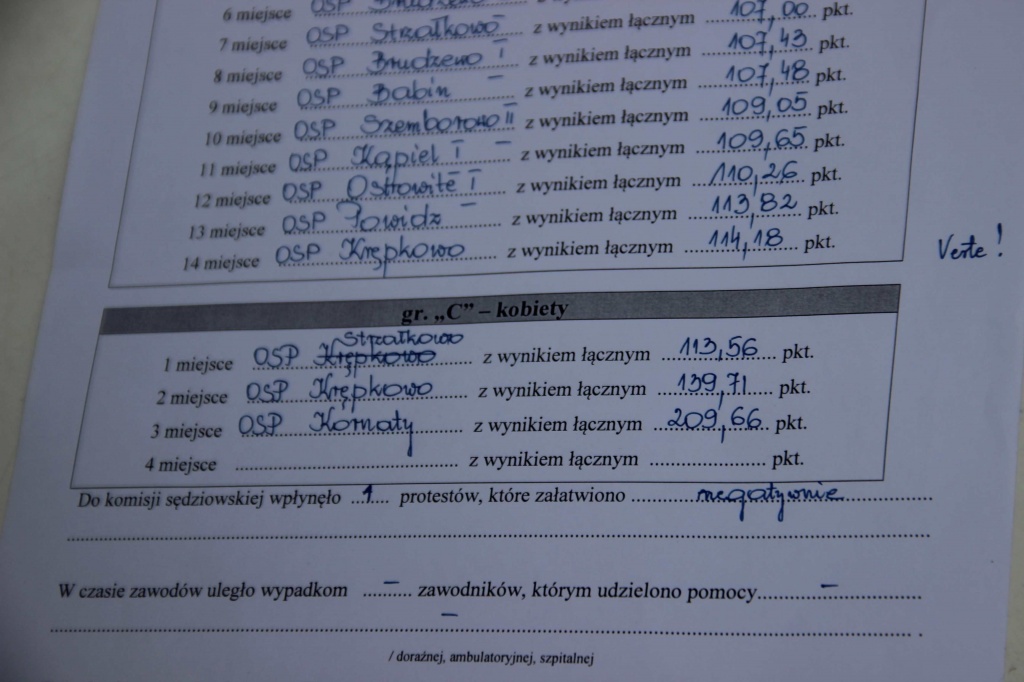 6 miejsce OSP z wynikiem łącznym 107,00 pkt.
7 miejsce OSP Strzałkowo z wynikiem łącznym 107,43 pkt.
8 miejsce OSP Brudzewo I z wynikiem łącznym 107,48 pkt.
9 miejsce OSP Babin z wynikiem łącznym 109,05 pkt.
10 miejsce OSP Szemborowo II z wynikiem łącznym 109,65 pkt.
11 miejsce OSP Kąpiel I z wynikiem łącznym 110,26 pkt.
12 miejsce OSP Ostrowite I z wynikiem łącznym 113,82 pkt.
13 miejsce OSP Powidz z wynikiem łącznym 114,18 pkt.
14 miejsce OSP Krępkowo z wynikiem łącznym pkt.
Verte!
gr. „C” – kobiety
Strzałkowo
1 miejsce OSP Krępkowo z wynikiem łącznym 113,56 pkt.
2 miejsce OSP Krępkowo z wynikiem łącznym 139,71 pkt.
3 miejsce OSP Kornaty z wynikiem łącznym 209,66 pkt.
4 miejsce z wynikiem łącznym pkt.
Do komisji sędziowskiej wpłynęło 1 protestów, które załatwiono negatywnie
W czasie zawodów uległo wypadkom – zawodników, którym udzielono pomocy –
–
/ doraźnej, ambulatoryjnej, szpitalnej